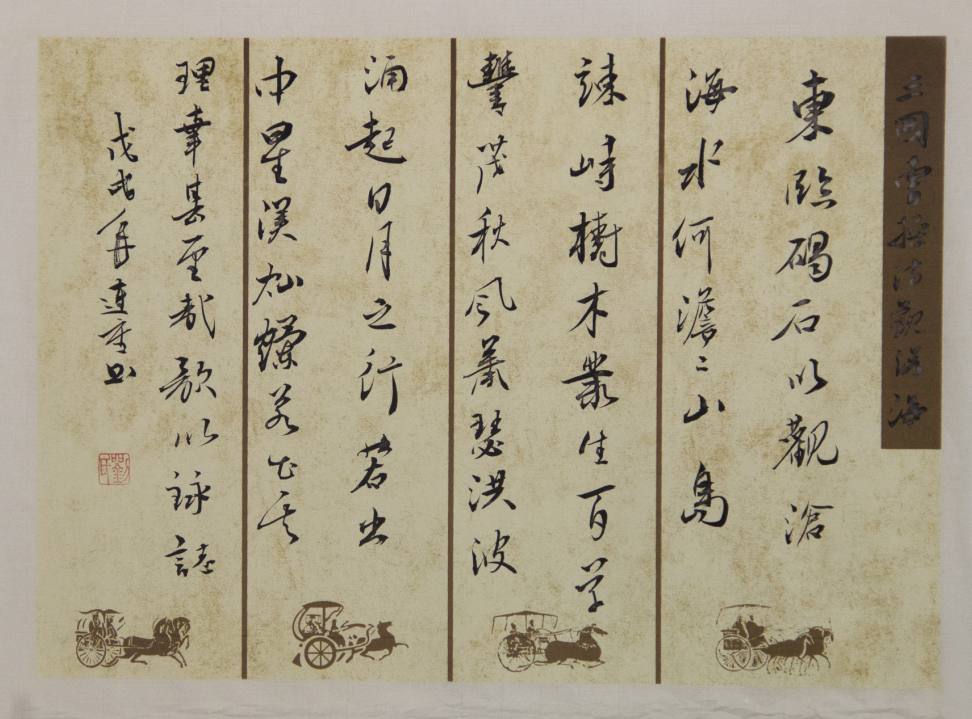 三國曹操诗觀滄海
東臨碣石以觀滄
海水何澹〻山島
竦峙樹木叢生百草
豐茂秋风蕭瑟洪波
涌起日月之行若出
中星漢灿爛若出其
理幸甚至哉歌以詠誌
戊戌年連书